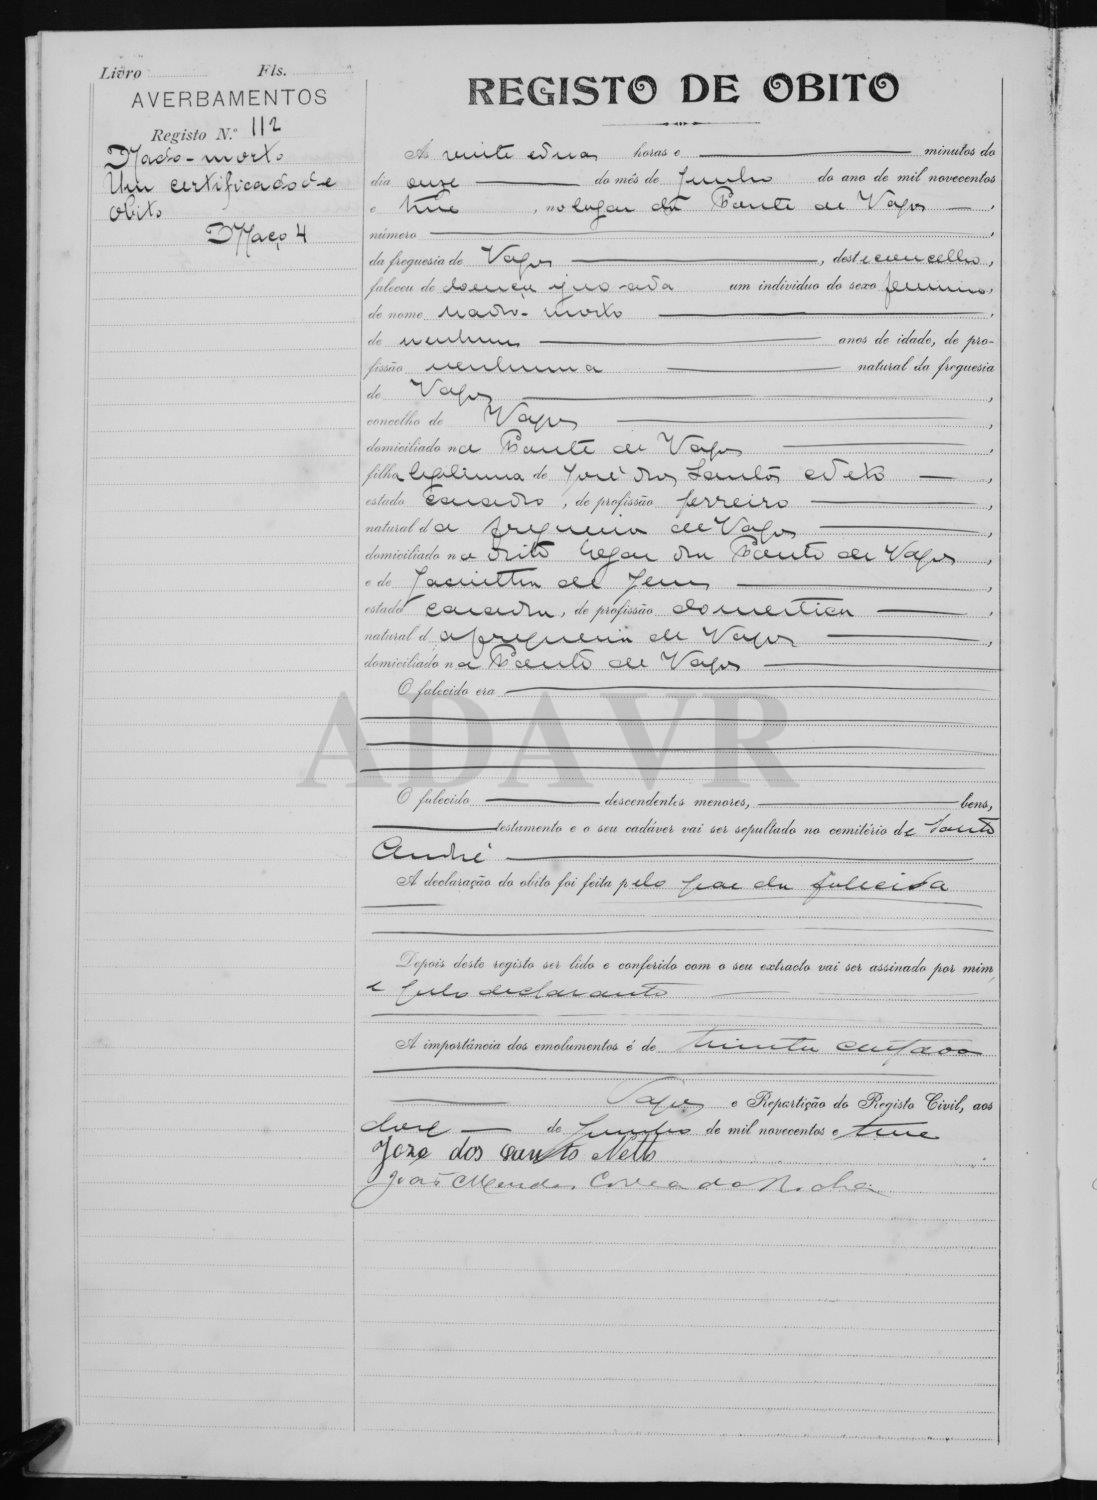 Livro Fls.
AVERBAMENTOS
Registo N.º 112
Nado-morto
Um certificado de
obito
Maço 4
REGISTO DE OBITO
Às vinte e duas horas e minutos do
dia onze do mês de Junho do ano de mil novecentos
e treze, no lugar da Ponte de Vagos,
número
da freguesia de Vagos, deste concelho,
faleceu de doença ignorada um individuo do sexo feminino,
de nome nado-morto
de nenhuns anos de idade, de pro-
fissão nenhuma natural da freguesia
de Vagos,
concelho de Vagos,
domiciliado na Ponte de Vagos,
filha legitima de José dos Santos Neto,
estado casado, de profissão ferreiro,
natural da freguesia de Vagos,
domiciliado no dito lugar da Ponte de Vagos,
e de de Jesus,
estado casada, de profissão domestica,
natural da freguesia de Vagos,
domiciliado na Ponte de Vagos
O falecido era
ADAVR
O falecido descendentes menores, bens,
testamento e o seu cadáver vai ser sepultado no cemitério de Santo
André
A declaração do obito foi feita pelo pae da falecida
Depois deste registo ser lido e conferido com o seu extracto vai ser assinado por mim,
e pelo declarante
A importância dos emolumentos é de trinta centavos
Vagos e Repartição do Registo Civil, aos
doze de Junho de mil novecentos e treze
Joze dos Santos Netto
João Mendes Correa da Rocha